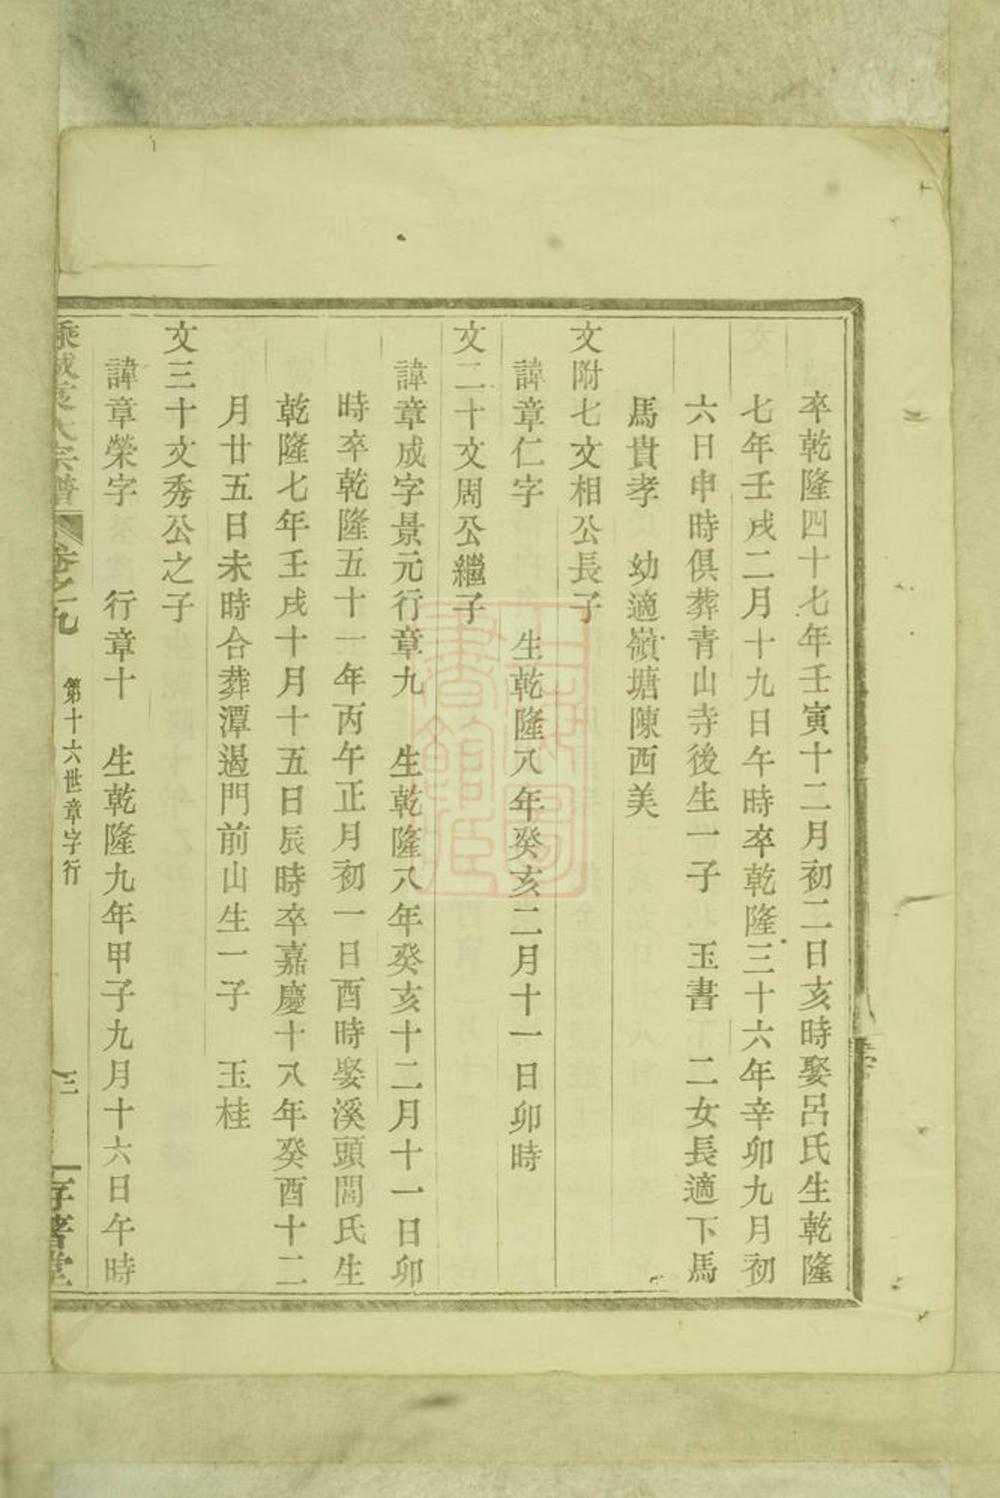 卒乾隆四十七年壬寅十二月初二日亥時娶呂氏生乾隆
七年壬戌二月十九日午時卒乾隆三十六年辛卯九月初
六日申時俱葬青山寺後生一子　玉書　二女長適下馬
馬貴孝　幼適嶺塘陳西美
文附七文相公長子
諱章仁字　　生乾隆八年癸亥二月十一日卯時
文二十文周公繼子
諱章成字景元行章九　生乾隆八年癸亥十二月十一日卯
時卒乾隆五十一年丙午正月初一日酉時娶溪頭閻氏生
乾隆七年壬戌十月十五日辰時卒嘉慶十八年癸酉十二
月廿五日未時合葬潭過門前山生一子　玉桂
文三十文秀公之子
諱章榮字　　行章十　生乾隆九年甲子九月十六日午時
宗譜　卷之九　第十六世章字行　三　堂